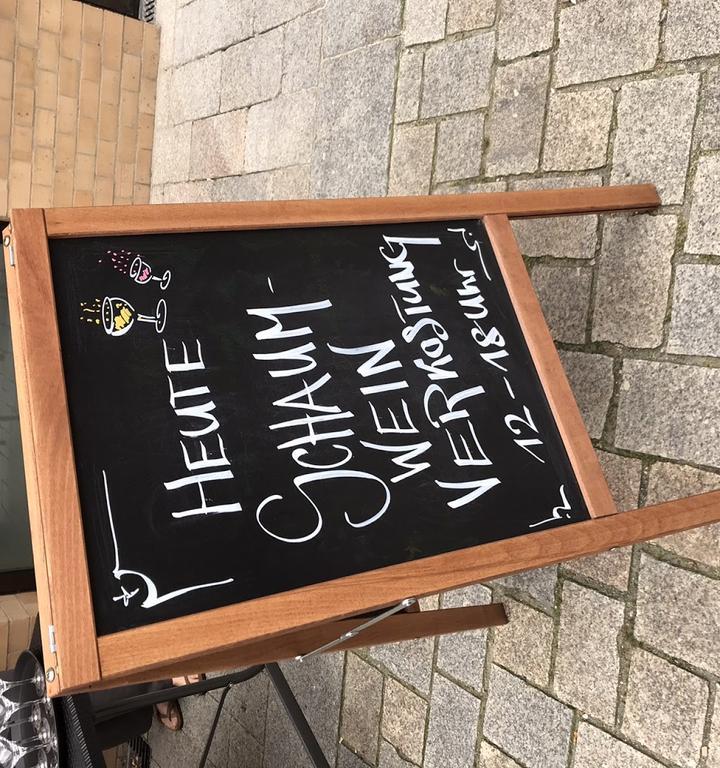 HEUTE
SCHAUM-
WEIN
VERKOSTUNG
12-18 Uhr